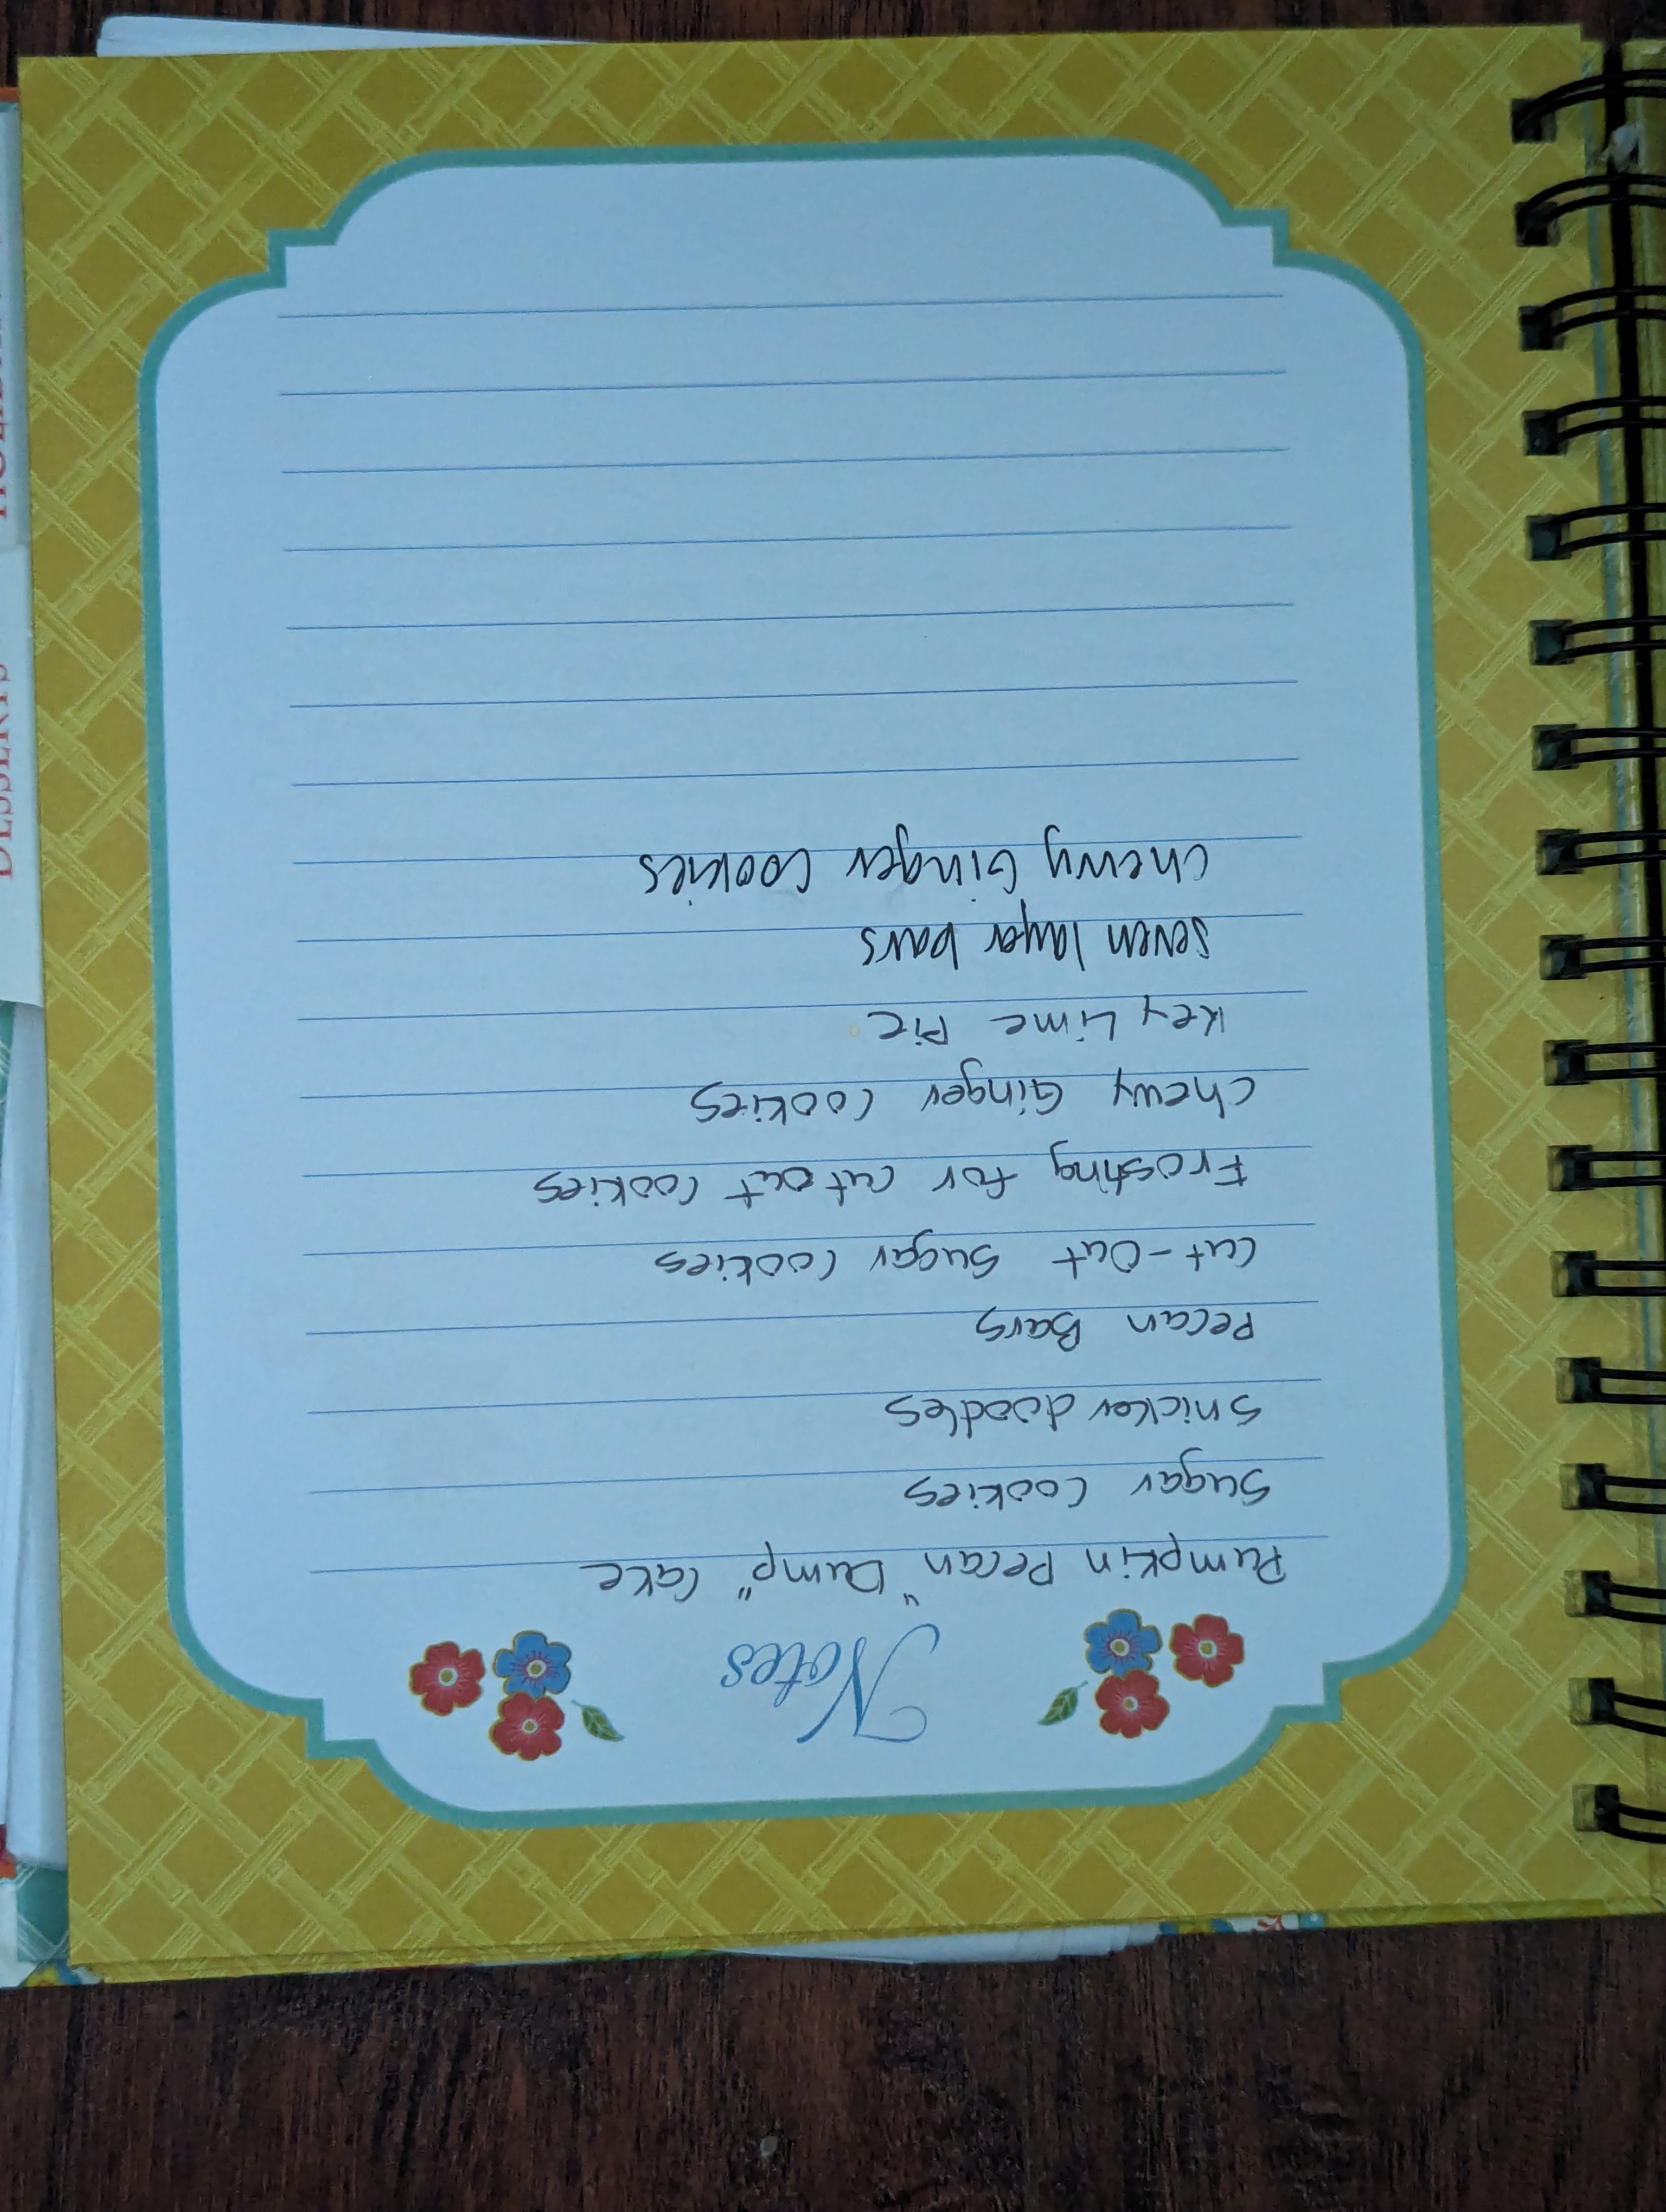 Notes
Pumpkin Pecan "Dump" Cake
Sugar Cookies
Snickerdoodles
Pecan Bars
Cut-Out Sugar Cookies
Frosting for cut out cookies
Chewy Ginger Cookies
Key Lime Pie
Seven layer bars
Chewy Ginger Cookies
DESSERTS